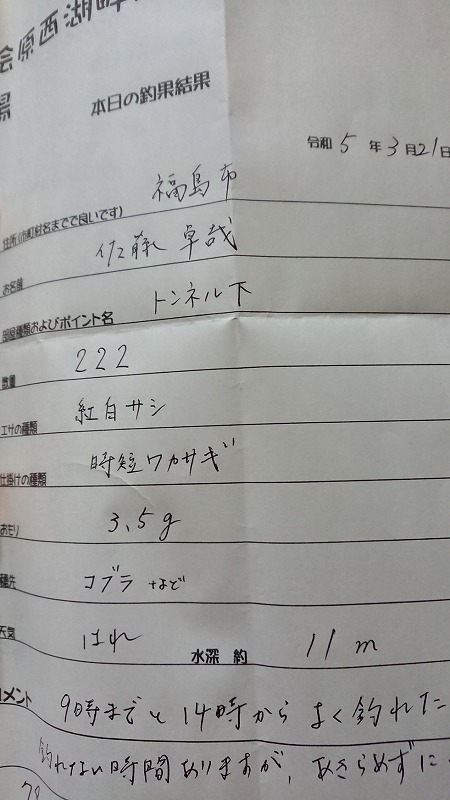 会原西湖畔
場
本日の釣果結果
令和 5 年 3 月 21 日
住所(市町村名までで良いです) 福島市
お名前 佐藤 卓哉
部屋種類およびポイント名 トンネル下
数量 222
エサの種類 紅白サシ
仕掛けの種類 時短ワカサギ
おもり 3.5g
穂先 コブラ など
天気 はれ 水深 約 11 m
コメント 9時までと14時からよく釣れた
釣れない時間ありますが、あきらめずに